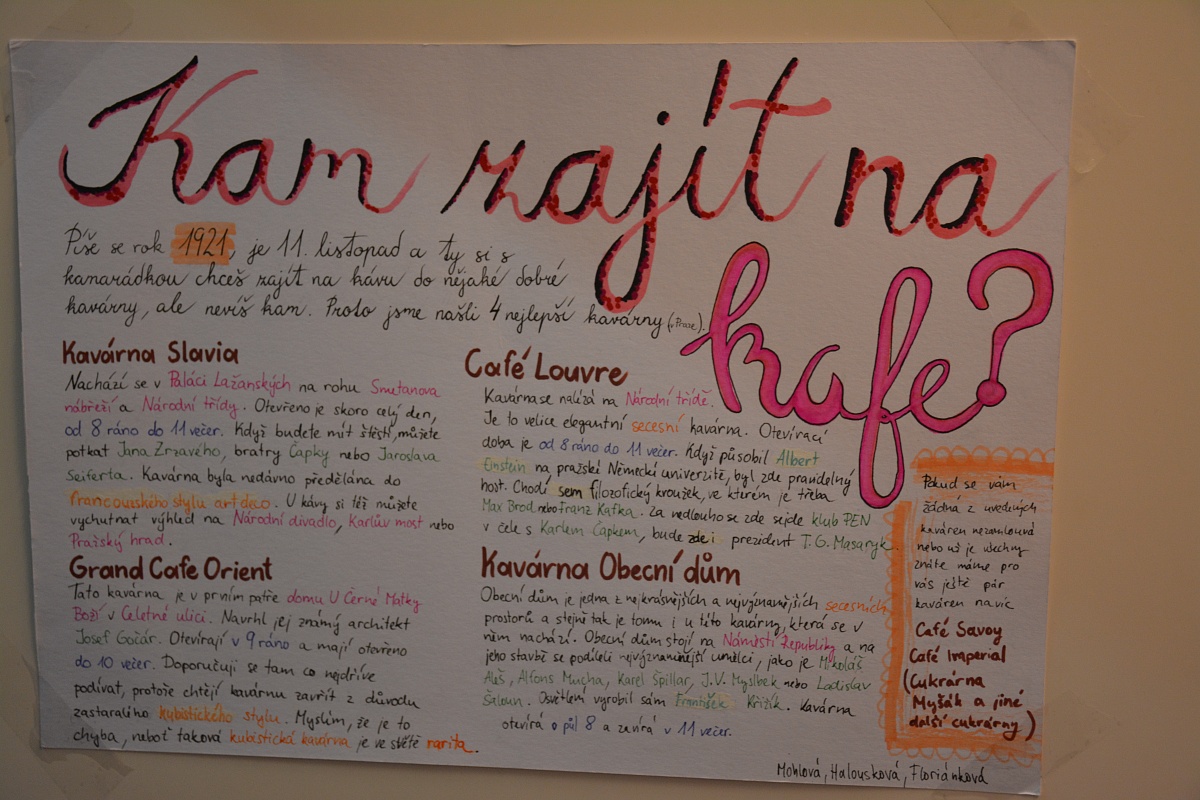 Kam zajít na
kafe?
Píše se rok 1921, je 11. listopad a ty si s
kamarádkou chceš zajít na kávu do nějaké dobré
kavárny, ale nevíš kam. Proto jsme našli 4 nejlepší kavárny (v Praze).
Kavárna Slavia
Nachází se v Paláci Lažanských na rohu Smetanova
nábřeží a Národní třídy. Otevřeno je skoro celý den,
od 8 ráno do 11 večer. Když budete mít štěstí, můžete
potkat Jana Zrzavého, bratry Čapky nebo Jaroslava
Seiferta. Kavárna byla nedávno předělána do
francouzského stylu art deco. U kávy si též můžete
vychutnat výhled na Národní divadlo, Karlův most nebo
Pražský hrad.
Grand Cafe Orient
Tato kavárna je v prvním patře domu U Černé Matky
Boží v Celetné ulici. Navrhl jej známý architekt
Josef Gočár. Otevírají v 9 ráno a mají otevřeno
do 10 večer. Doporučuji se tam co nejdříve
podívat, protože chtějí kavárnu zavřít z důvodu
zastaralého kubistického stylu. Myslím, že je to
chyba, neboť taková kubistická kavárna je ve světě rarita.
Café Louvre
Kavárna se nalízá na Národní třídě.
Je to velice elegantní secesní kavárna. Otevírací
doba je od 8 ráno do 11 večer. Když působil Albert
Einstein na pražské Německé univerzitě, byl zde pravidelný
host. Chodí sem filozofický kroužek, ve kterém je třeba
Max Brod nebo Franz Kafka. Za nedlouho se zde sejde klub PEN
v čele s Karlem Čapkem, bude zde i prezident T.G. Masaryk.
Kavárna Obecní dům
Obecní dům je jedna z nejkrásnějších a nejvýznamějších secesních
prostorů a stejně tak je tomu i u této kavárny, která se v
něm nachází. Obecní dům stojí na Náměstí Republiky a na
jeho stavbě se podíleli nejvýznamnější umělci, jako je Mikoláš
Aleš, Alfons Mucha, Karel Špillar, J.V. Myslbek nebo Ladislav
Šaloun. Osvětlení vyrobil sám František Křižík. Kavárna
otevírá o půl 8 a zavírá v 11 večer.
Pokud se vám
žádná z uvedených
kaváren nezamlouvá
nebo už je všechny
znáte máme pro
vás ještě pár
kaváren navíc
Café Savoy
Café Imperial
(Cukrárna
Myšák a jiné
další cukrárny)
Mohlová, Halousková, Floriánková